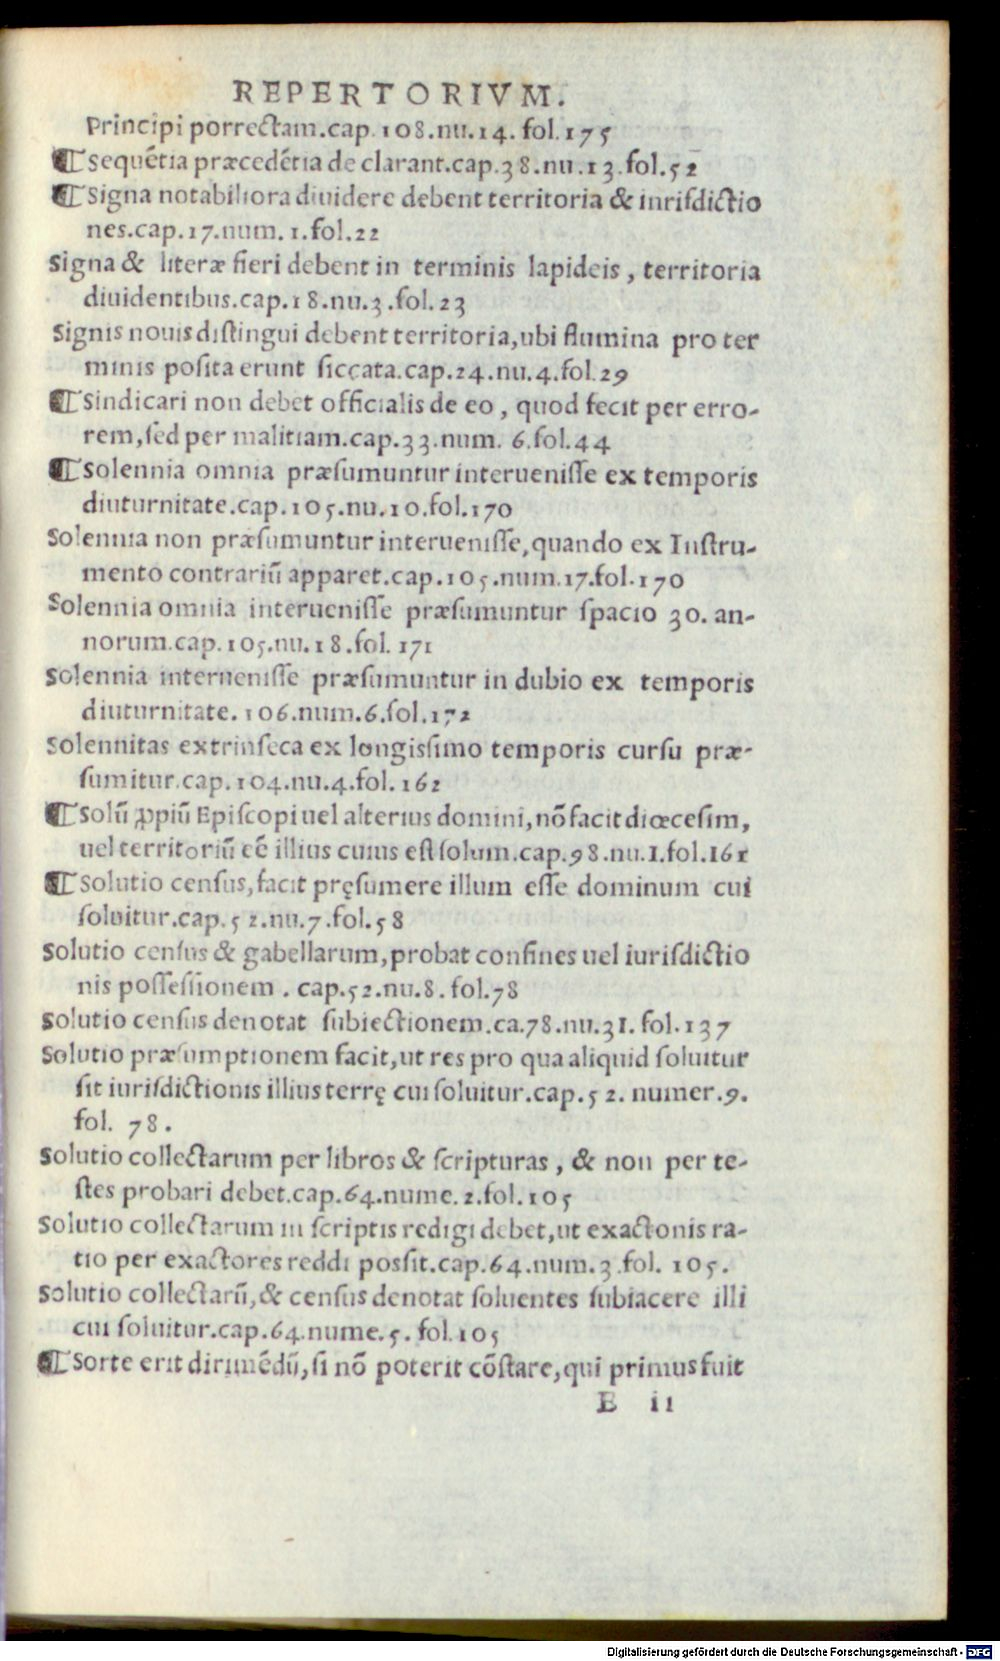 REPERTORIVM.
Principi porrectam.cap.108.nu.14. fol.175
¶ Sequẽtia præcedẽtia de clarant.cap.38.nu.13.fol.52
¶ Signa notabiliora diuidere debent territoria & iurisdictio
nes.cap.17.num.1.fol.22
Signa & literæ fieri debent in terminis lapideis, territoria
diuidentibus.cap.18.nu.3.fol.23
Signis nouis distingui debent territoria,ubi flumina pro ter
minis posita erunt siccata.cap.24.nu.4.fol.29
¶ Sindicari non debet officialis de eo, quod fecit per erro-
rem,sed per malitiam.cap.33.num. 6.fol.44
¶ Solennia omnia præsumuntur interuenisse ex temporis
diuturnitate.cap.105.nu.10.fol.170
Solennia non præsumuntur interuenisse,quando ex Instru-
mento contrariũ apparet.cap.105.num.17.fol.170
Solennia omnia interuenisse præsumuntur spacio 30. an-
norum.cap.105.nu.18.fol.171
Solennia interuenisse præsumuntur in dubio ex temporis
diuturnitate.106.num.6.fol.172
Solennitas extrinseca ex longissimo temporis cursu præ-
sumitur.cap.104.nu.4.fol.162
¶ Solũ ꝓpiũ Episcopi uel alterius domini,nõ facit diœcesim,
uel territoriũ eẽ illius cuius est solum.cap.98.nu.1.fol.161
¶ Solutio census,facit pręsumere illum esse dominum cui
soluitur.cap.52.nu.7.fol.58
Solutio census & gabellarum,probat confines uel iurisdictio
nis possessionem. cap.52.nu.8.fol.78
Solutio census denotat subiectionem.ca.78.nu.31.fol.137
Solutio præsumptionem facit,ut res pro qua aliquid soluitur
sit iurisdictionis illius terrę cui soluitur.cap.52. numer.9.
fol. 78.
Solutio collectarum per libros & scripturas, & non per te-
stes probari debet.cap.64.nume.2.fol.105
Solutio collectarum in scriptis redigi debet,ut exactonis ra-
tio per exactores reddi possit.cap.64.num.3.fol. 105.
Solutio collectarũ,& census denotat soluentes subiacere illi
cui soluitur.cap.64.nume.5. fol.105
¶ Sorte erit dirimẽdũ,si nõ poterit cõstare,qui primus fuit
E ii
Digitalisierung gefördert durch die Deutsche Forschungsgemeinschaft - DFG